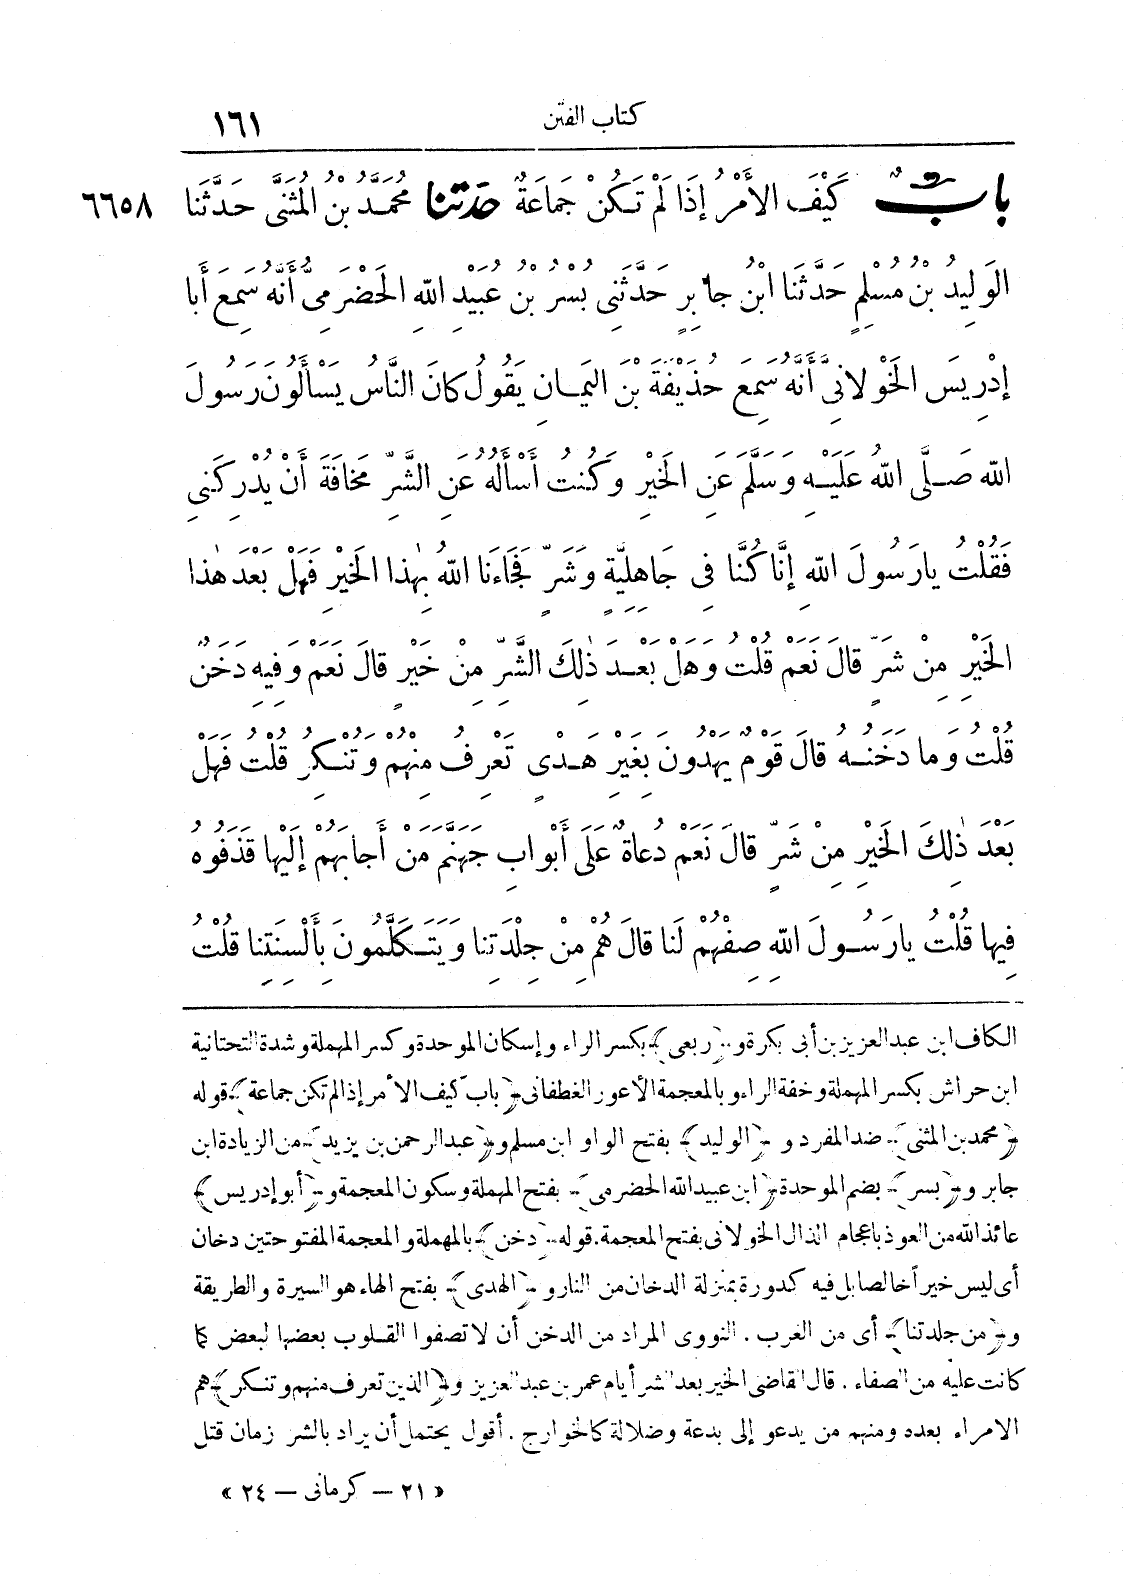 كتاب الفتن
١٦١
بابٌ كَيْفَ الأَمْرُ إِذَا لَمْ تَكُنْ جَمَاعَةٌ حَدَّثَنَا مُحَمَّدُ بْنُ الْمُثَنَّى حَدَّثَنَا
٦٦٥٨
الْوَلِيدُ بْنُ مُسْلِمٍ حَدَّثَنَا ابْنُ جَابِرٍ حَدَّثَنِى بُسْرُ بْنُ عُبَيْدِ اللهِ الْحَضْرَمِىُّ أَنَّهُ سَمِعَ أَبَا
إِدْرِيسَ الْخَوْلَانِىَّ أَنَّهُ سَمِعَ حُذَيْفَةَ بْنَ الْيَمَانِ يَقُولُ كَانَ النَّاسُ يَسْأَلُونَ رَسُولَ
اللهِ صَلَّى اللهُ عَلَيْهِ وَسَلَّمَ عَنِ الْخَيْرِ وَكُنْتُ أَسْأَلُهُ عَنِ الشَّرِّ مَخَافَةَ أَنْ يُدْرِكَنِى
فَقُلْتُ يارَسُولَ اللهِ إِنَّا كُنَّا فِى جَاهِلِيَّةٍ وَشَرٍّ فَجَاءَنَا اللهُ بِهٰذا الْخَيْرِ فَهَلْ بَعْدَ هٰذا
الْخَيْرِ مِنْ شَرٍّ قالَ نَعَمْ قُلْتُ وَهَلْ بَعْدَ ذٰلِكَ الشَّرِّ مِنْ خَيْرٍ قالَ نَعَمْ وَفِيهِ دَخَنٌ
قُلْتُ وَما دَخَنُهُ قالَ قَوْمٌ يَهْدُونَ بِغَيْرِ هَدْىٍ تَعْرِفُ مِنْهُمْ وَتُنْكِرُ قُلْتُ فَهَلْ
بَعْدَ ذٰلِكَ الْخَيْرِ مِنْ شَرٍّ قالَ نَعَمْ دُعاةٌ عَلَى أَبْوابِ جَهَنَّمَ مَنْ أَجابَهُمْ إِلَيْها قَذَفُوهُ
فِيها قُلْتُ يارَسُولَ اللهِ صِفْهُمْ لَنا قالَ هُمْ مِنْ جِلْدَتِنا وَيَتَكَلَّمُونَ بِأَلْسِنَتِنا قُلْتُ
الكاف ابن عبد العزيز بن أبى بكرة و ﴿ربعى﴾ بكسر الراء وإسكان الموحدة وكسر المهملة وشدة التحتانية
ابن حراش بكسر المهملة وخفة الراء وبالمعجمة الأعور الغطفانى ﴿باب كيف الأمر إذا لم تكن جماعة﴾ قوله
﴿محمد بن المثنى﴾ ضد المفرد و ﴿الوليد﴾ بفتح الواو ابن مسلم و ﴿عبد الرحمن بن يزيد﴾ من الزيادة ابن
جابر و ﴿بسر﴾ بضم الموحدة ﴿ابن عبيد الله الحضرمى﴾ بفتح المهملة وسكون المعجمة و ﴿أبو إدريس﴾
عائذ الله من العوذ باعجام الذال الخولانى بفتح المعجمة. قوله ﴿دخن﴾ بالمهملة والمعجمة المفتوحتين دخان
أى ليس خيراً خالصا بل فيه كدورة بمنزلة الدخان من النار و ﴿الهدى﴾ بفتح الهاء هو السيرة والطريقة
و ﴿من جلدتنا﴾ أى من العرب . النووى المراد من الدخن أن لا تصفوا القلوب بعضها لبعض كما
كانت عليه من الصفاء . قال القاضى الخير بعد الشر أيام عمر بن عبد العزيز و ﴿الذين تعرف منهم وتنكر﴾ هم
الامراء بعده ومنهم من يدعو إلى بدعة وضلالة كالخوارج . أقول يحتمل أن يراد بالشر زمان قتل
« ٢١ – كرمانى – ٢٤ »